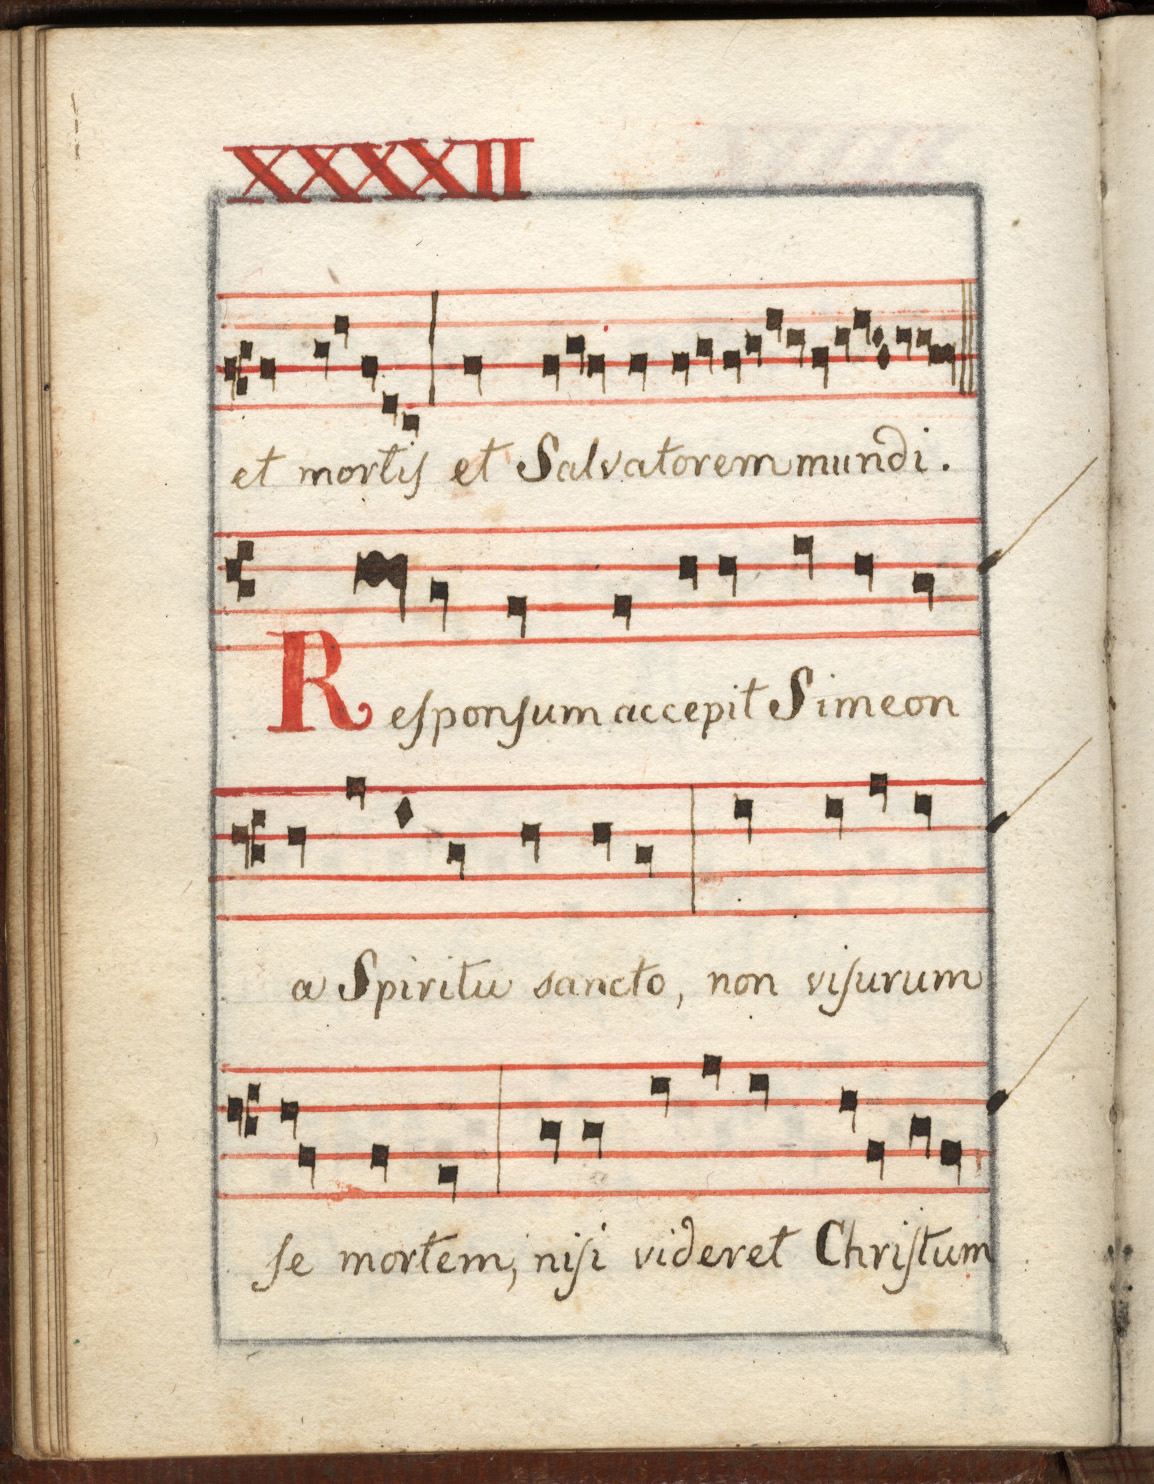 XXXXII
et mortis et Salvatorem mundi.
Reſponſum accepit Simeon
a Spiritu sancto, non viſurum
ſe mortem, niſi videret Chriſtum